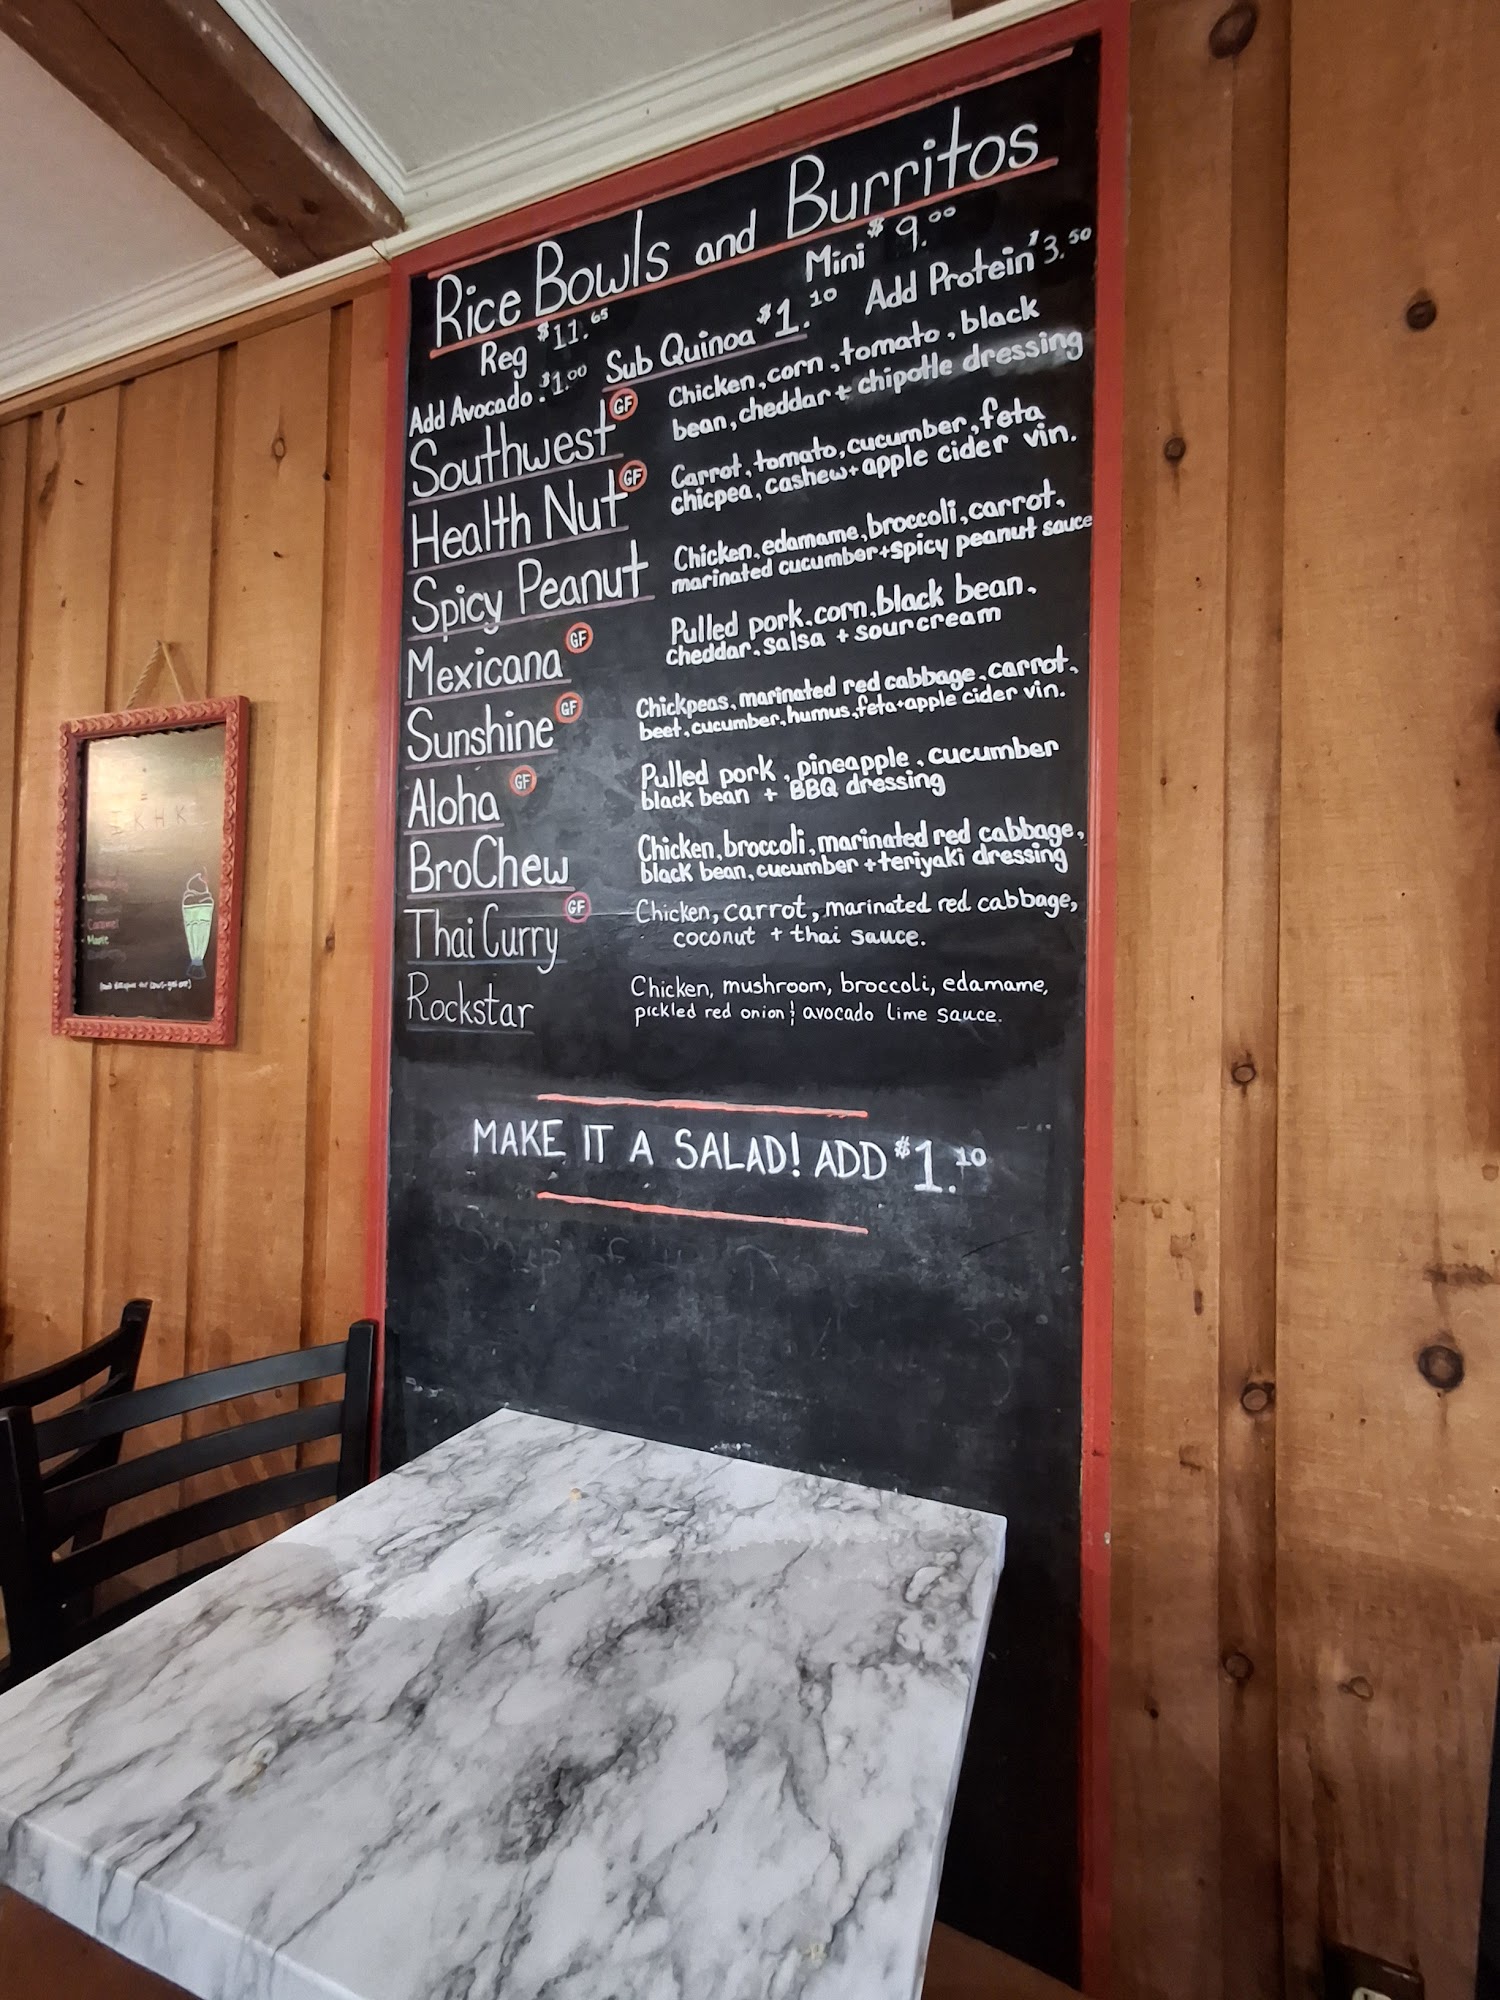 Rice Bowls and Burritos
Reg $11.65 Mini $9.00
Add Avocado $1.00 Sub Quinoa $1.10 Add Protein $3.50
Southwest GF Chicken, corn, tomato, black
bean, cheddar + chipotle dressing
Health Nut GF Carrot, tomato, cucumber, feta
chicpea, cashew + apple cider vin.
Spicy Peanut Chicken, edamame, broccoli, carrot,
marinated cucumber + spicy peanut sauce
Mexicana GF Pulled pork, corn, black bean,
cheddar, salsa + sour cream
Sunshine GF Chickpeas, marinated red cabbage, carrot,
beet, cucumber, humus, feta + apple cider vin.
Aloha GF Pulled pork, pineapple, cucumber
black bean + BBQ dressing
BroChew Chicken, broccoli, marinated red cabbage,
black bean, cucumber + teriyaki dressing
Thai Curry GF Chicken, carrot, marinated red cabbage,
coconut + thai sauce.
Rockstar Chicken, mushroom, broccoli, edamame,
pickled red onion & avocado lime sauce.
MAKE IT A SALAD! ADD $1.10
Vanilla
Caramel
Maple